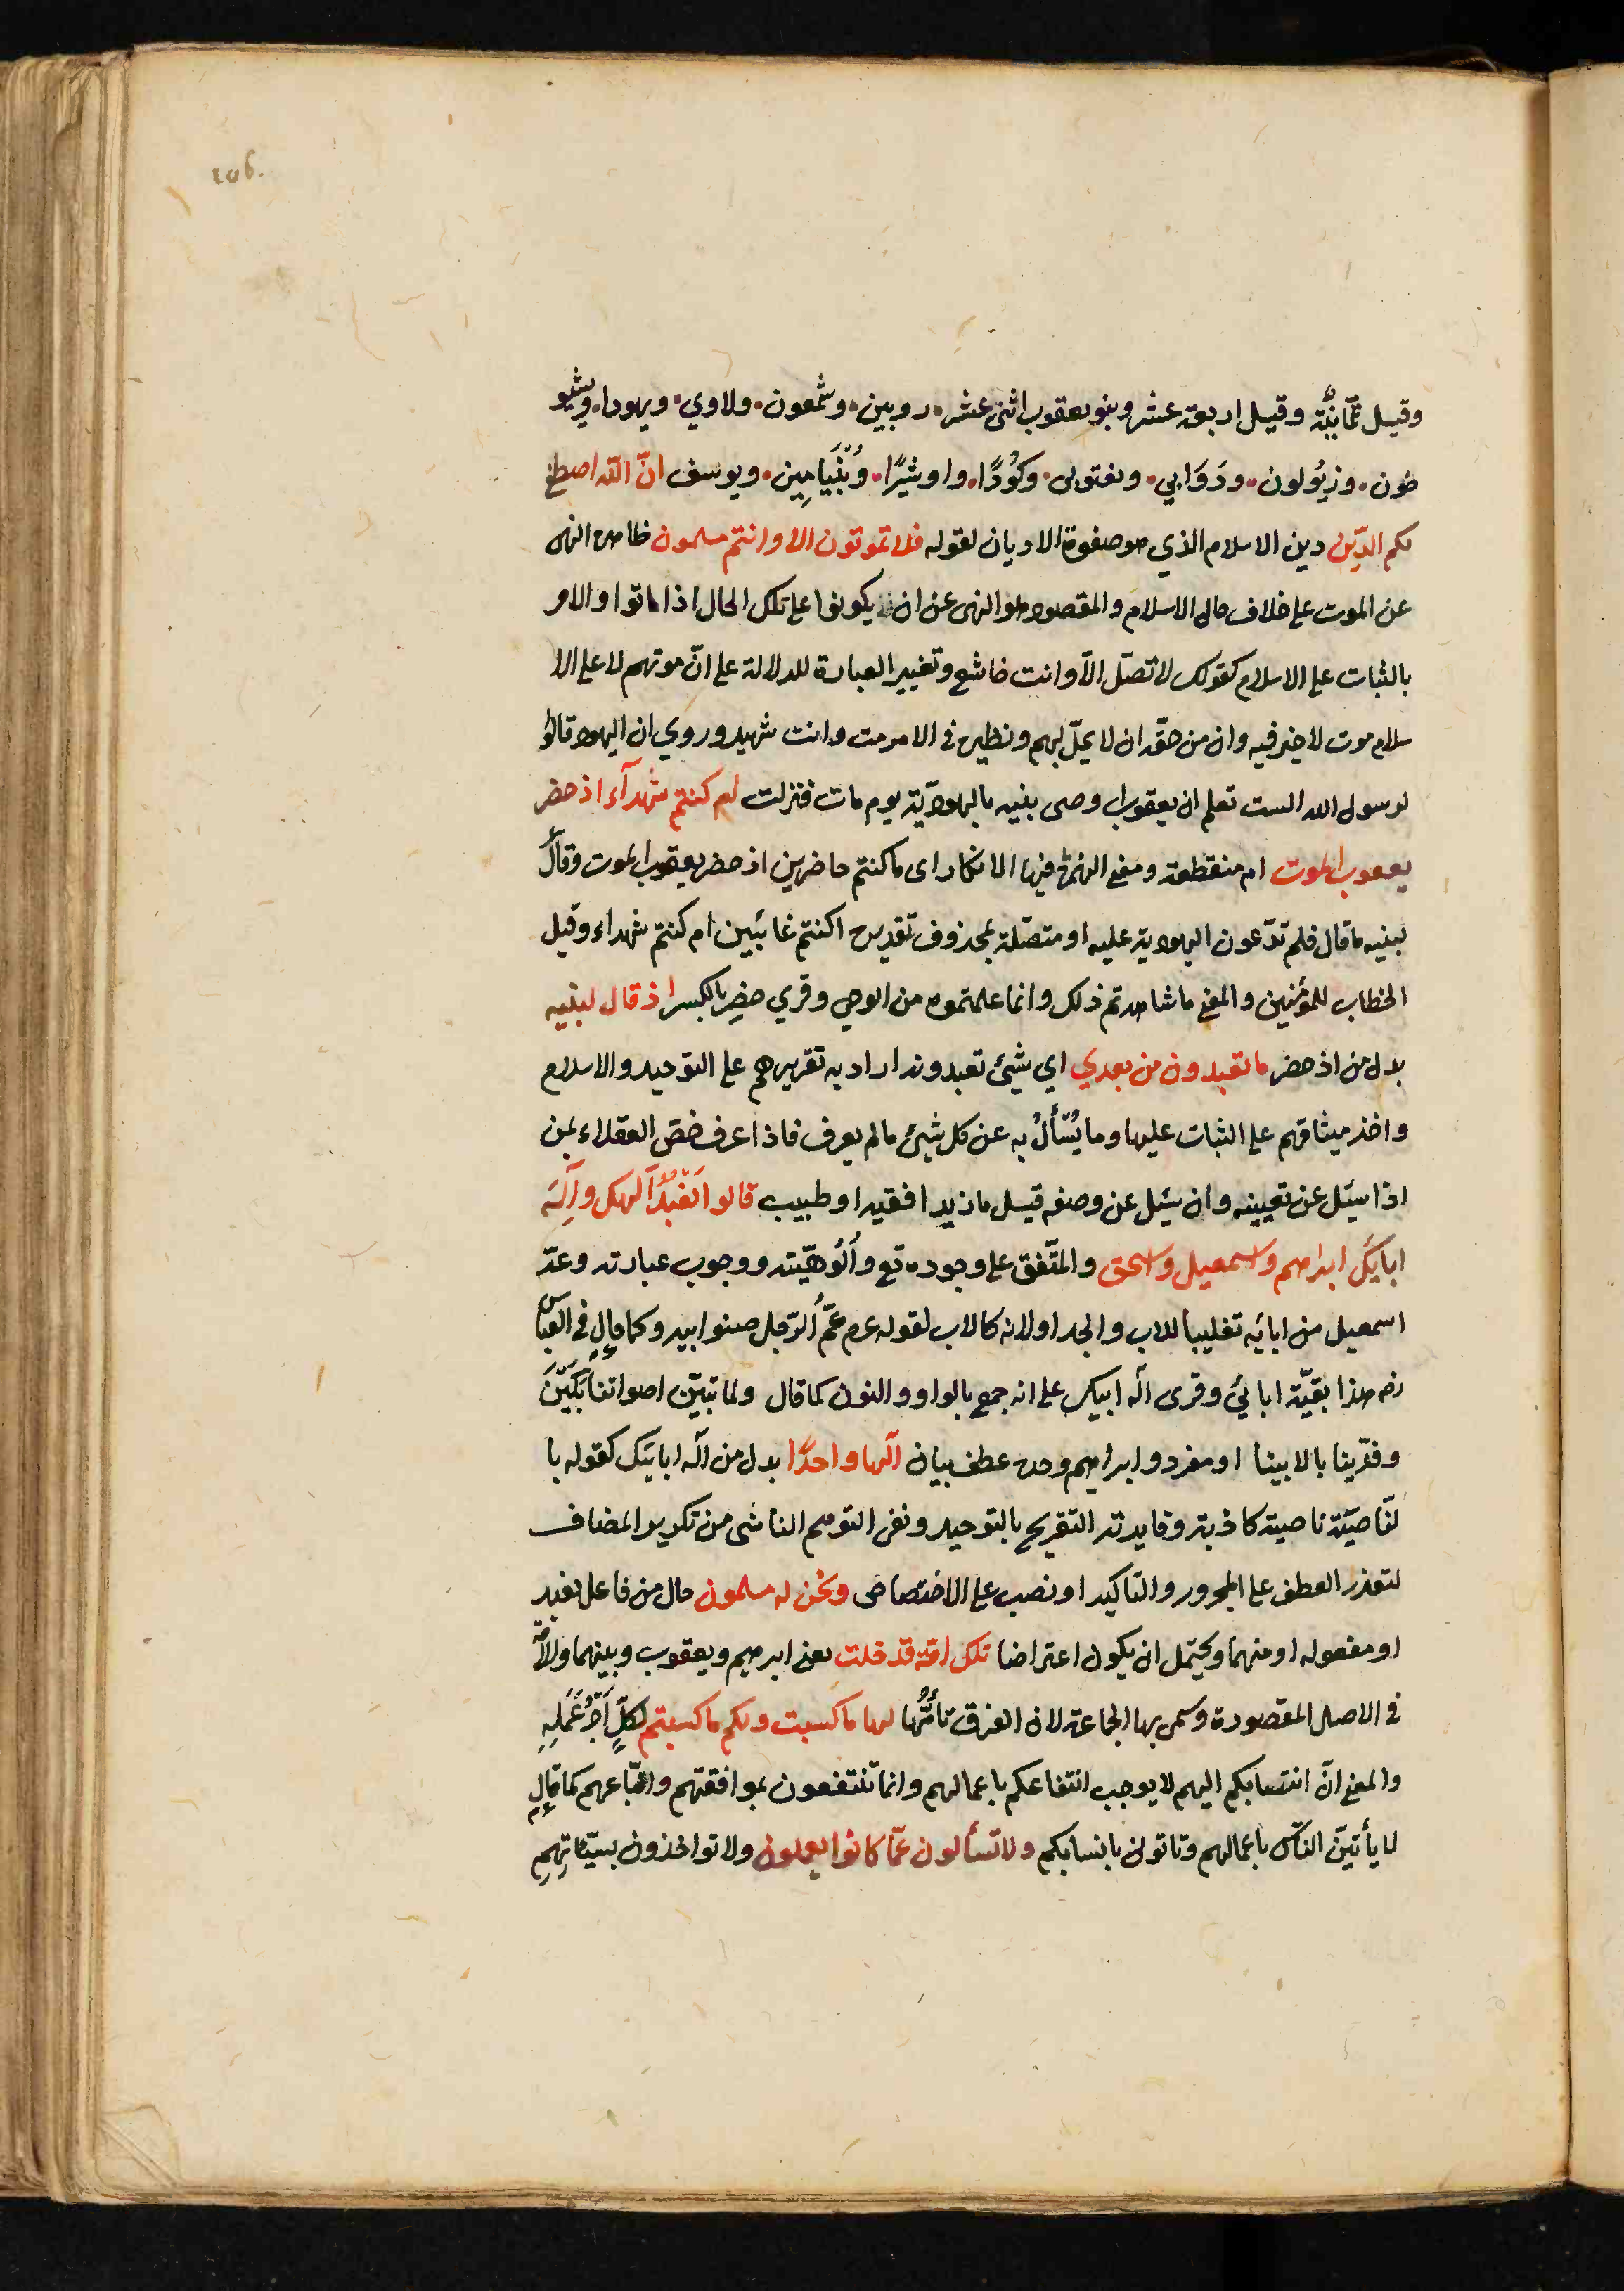 وقيل ثمانية وقيل اربعة عشر وبنو يعقوب اثنى عشر، روبين، وشمعون، ولاوي، ويهودا، ويشيو
خون، وزيولون، ودوابي، ونفتولى، وكوُدًا، واوشيرًا، وبنيامِين، ويوسف انّ اللّه اصطفى
لكم الدّين دين الاسلام الذي هو صفوة الاديان لقوله فلا تموتون الا وانتم مسلمون ظاهره النهى
عن الموت على خلاف حال الاسلام والمقصود هو النهى عن ان يكونوا على تلك الحال اذا ماتوا والامر
بالثبات على الاسلام كقولك لا تصّل الّا وانت خاشع وتغيير العبارة للدلالة على انّ موتهم لا على الا
سلام موت لا خير فيه وان من حقّه ان لا يحلّ بهم ونظيره في الامر مت وانت شهيد وروي ان اليهود قالوا
لرسول الله الست تعلم ان يعقوب اوصى بنيه باليهوديّة يوم مات فنزلت ام كنتم شهدآء اذ حضر
يعقوب الموت ام منقطعة ومعنى الهمزة فيها الانكار اى ما كنتم حاضرين اذ حضر يعقوب الموت وقال
لبنيه ما قال فلم تدّعون اليهودية عليه او متصّلة بمحذوف تقديره اكنتم غائبين ام كنتم شهداء وقيل
الخطاب للمؤمنين والمعنى ما شاهدتم ذلك وانما علمتموه من الوحى وقري حضِر بالكسر اذ قال لبنيه
بدل من اذ حضر ما تعبدون من بعدي اي شيئ تعبدونه اراد به تقريرهم على التوحيد والاسلام
واخذ ميثاقهم على الثبات عليها وما يُسأَلُ به عن كل شيئ ما لم يعرف فاذا عرف خصّ العقلاء بمن
اذا سيئل عن تعيينه وان سيئل عن وصفه قيل ما زيد افقيه او طبيب قالوا نَعْبُدُ آلهك وآله
ابايَك ابراهيم واسمعيل واسحق والمتّفق على وجوده تع وأُلُوهيّته ووجوب عبادته وعدّ
اسمعيل من ابائه تغليباً للاب والجد او لانه كالاب لقوله عم عمُّ الرّجل صنو ابيه وكما قال في العبّاس
رضه هذا بقيّة ابائي وقرى اله ابيك على انه جمع بالواو والنون كما قال ولما تبيّن اصواتنا بكَيْنَ
وفدّيننا بالابينا او مفرد وابراهيم وحده عطف بيان آلها واحدًا بدل من آله ابايَك كقوله با
لنّاصية ناصية كاذبة وفايدته التصريح بالتوحيد ونفى التوهم الناشى من تكرير المضاف
لتعذر العطف على المجرور والتاكيد او نصب على الاختصاص ونحن له مسلمون حال من فاعل نعبد
او مفعوله او منهما ويحتمل ان يكون اعتراضا تلك امّة قد خلت يعنى ابرهيم ويعقوب وبينهما والامّة
في الاصل المقصودة وسمى بها الجماعة لان الفرق تأمُّها لها ما كسبت ولكم ما كسبتم لكلٍّ أجر عَمَلِهِ
والمعنى انّ انتسابكم اليهم لا يوجب انتفاعكم باعمالهم وانما تنتفعون بموافقتهم واتّباعهم كما قال عم
لا يأتينّ النّاس باعمالهم وتاتون بانسابكم ولا تسألون عمّا كانوا يعملون ولا تواخذون بسيّئاتِهِم